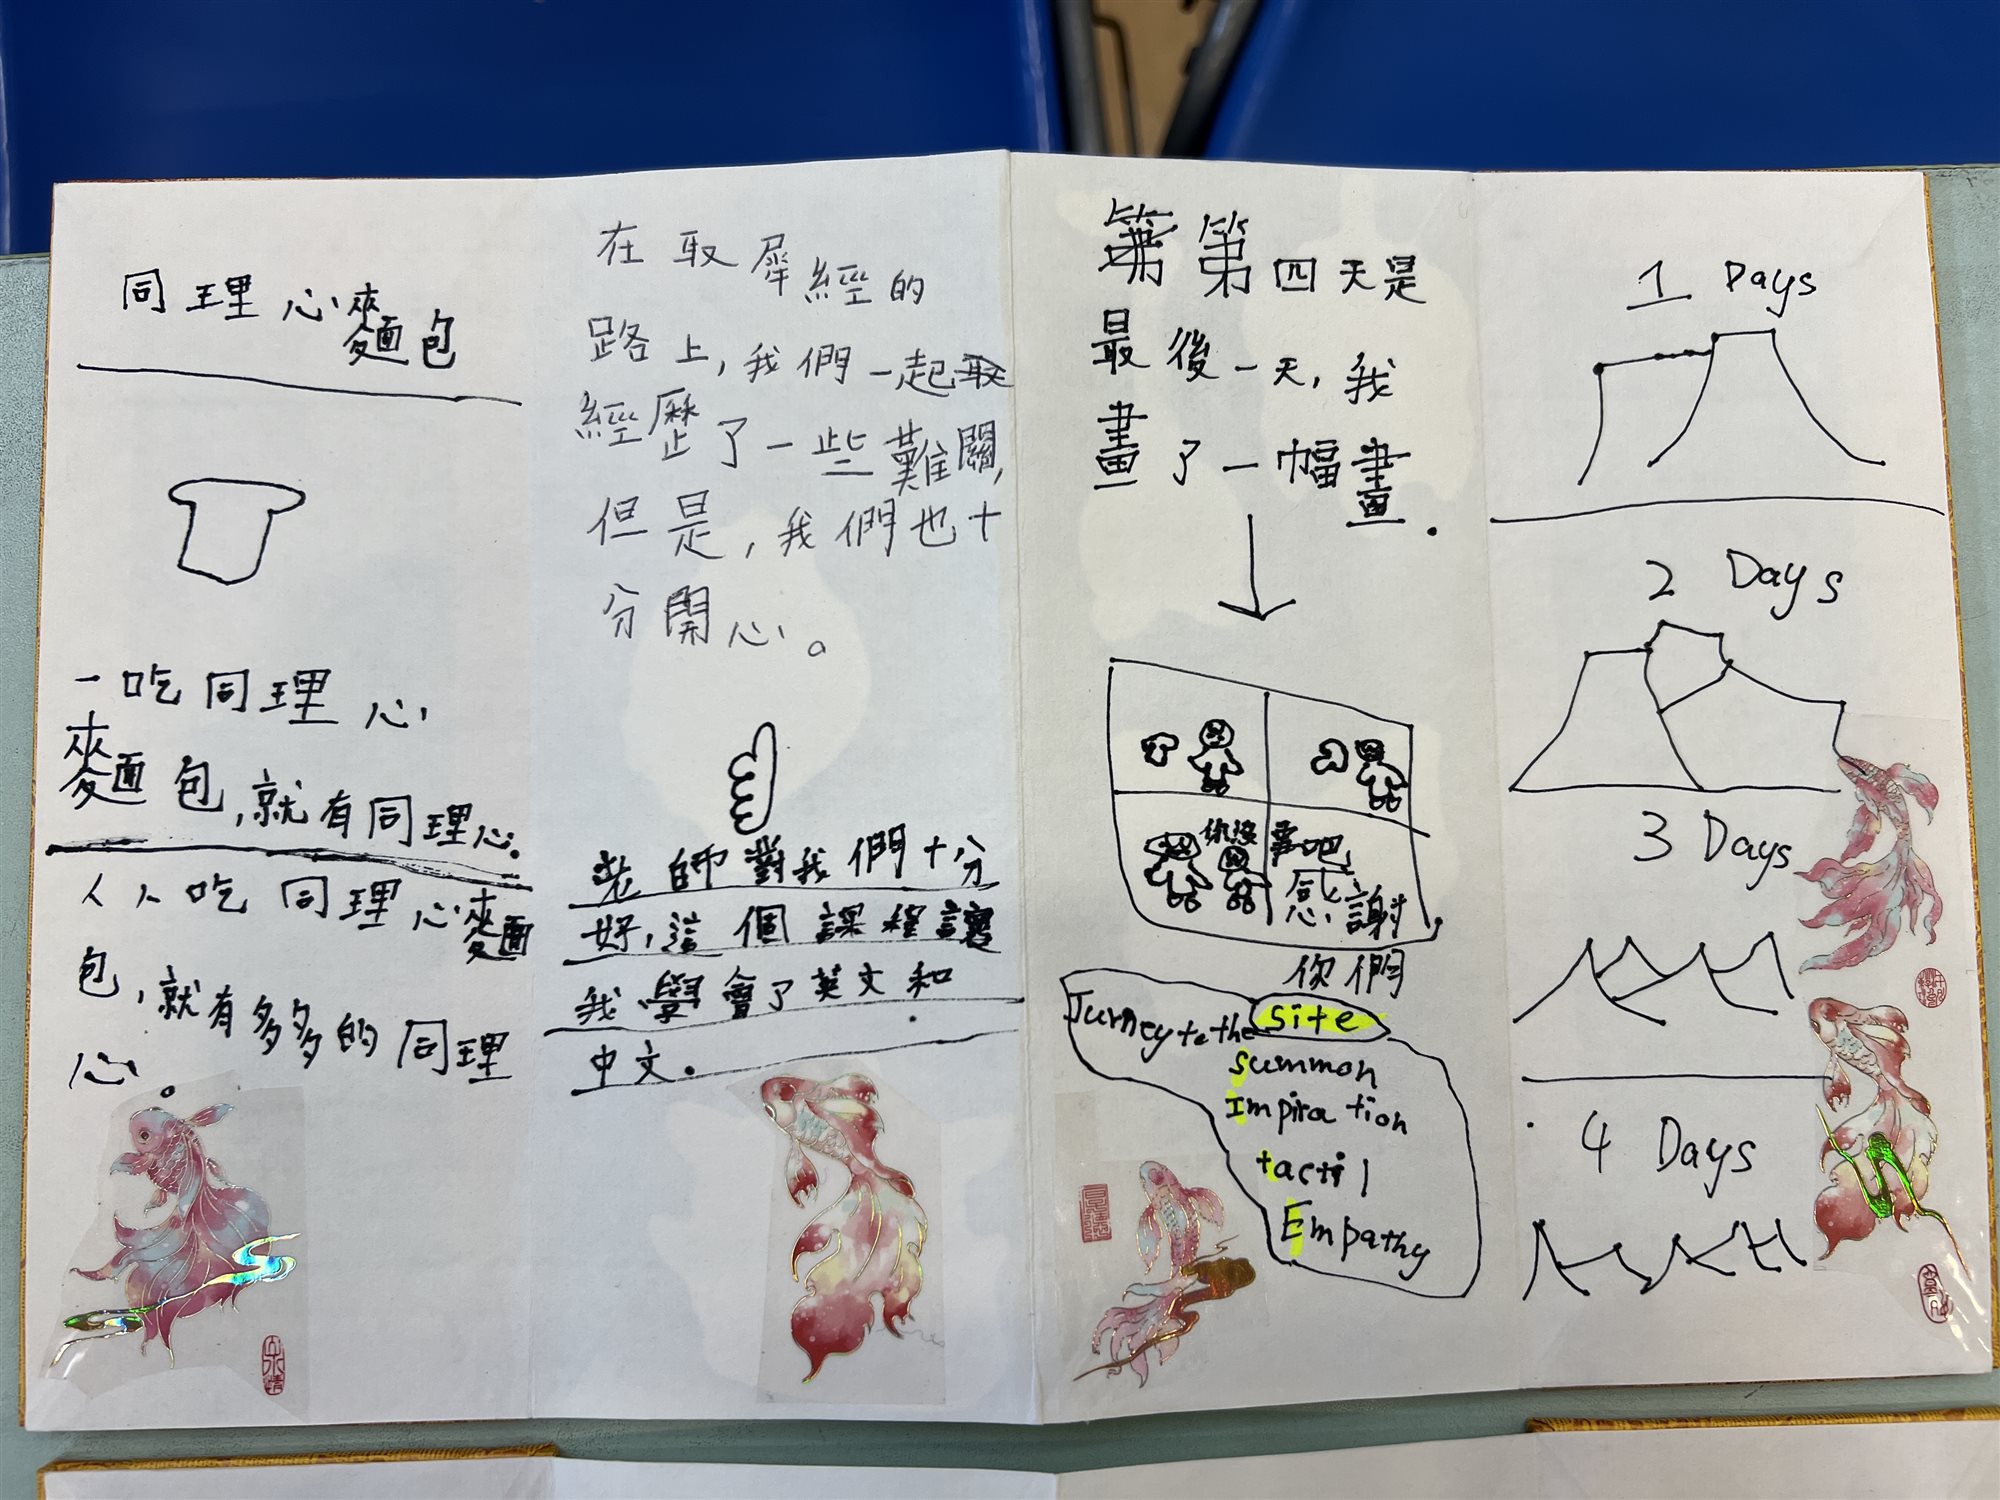 同理心麵包
一吃同理心
麵包,就有同理心.
人人吃同理心麵
包,就有多多的同理
心。
在取犀經的
路上,我們一起
經歷了一些難關,
但是,我們也十
分開心。
老師對我們十分
好,這個課程讓
我學會了英文和
中文.
第四天是
最後一天,我
畫了一幅畫.
你沒事吧
感謝
你們
Jurney to the site
Summon
Impiration
tactil
Empathy
1 Days
2 Days
3 Days
4 Days